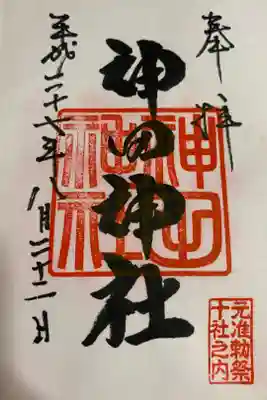 奉拝
神田神社
神田神社
元准勅祭
十社之内
平成二十七年八月二十二日